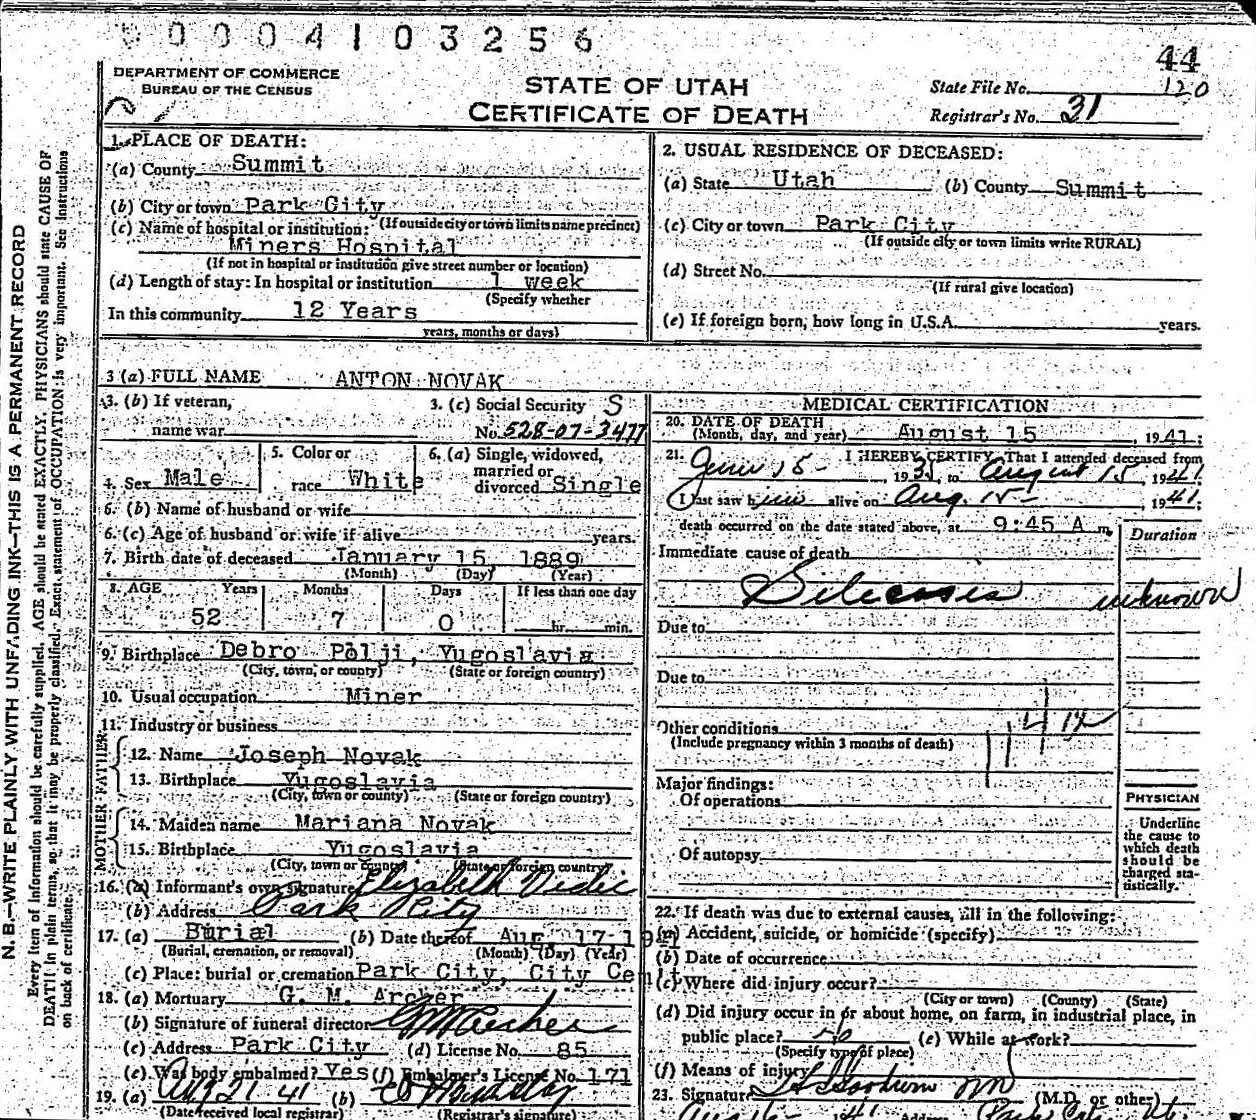 0004103256
44
DEPARTMENT OF COMMERCE
BUREAU OF THE CENSUS
STATE OF UTAH
CERTIFICATE OF DEATH
State File No. 120
Registrar's No. 31
N. B.—WRITE PLAINLY WITH UNFADING INK—THIS IS A PERMANENT RECORD
Every item of information should be carefully supplied. AGE should be stated EXACTLY. PHYSICIANS should state CAUSE OF
DEATH in plain terms, so that it may be properly classified. Exact statement of OCCUPATION is very important. See instructions
on back of certificate.
1. PLACE OF DEATH:
(a) County Summit
(b) City or town Park City
(If outside city or town limits name precinct)
(c) Name of hospital or institution:
Miners Hospital
(If not in hospital or institution give street number or location)
(d) Length of stay: In hospital or institution 1 week
(Specify whether
In this community 12 Years
years, months or days)
2. USUAL RESIDENCE OF DECEASED:
(a) State Utah (b) County Summit
(c) City or town Park City
(If outside city or town limits write RURAL)
(d) Street No.
(If rural give location)
(e) If foreign born, how long in U.S.A. years.
3 (a) FULL NAME ANTON NOVAK
3. (b) If veteran,
name war
3. (c) Social Security S
No. 528-07-3477
4. Sex Male
5. Color or
race White
6. (a) Single, widowed,
married or
divorced Single
6. (b) Name of husband or wife
6. (c) Age of husband or wife if alive years.
7. Birth date of deceased January 15 1889
(Month) (Day) (Year)
8. AGE Years Months Days If less than one day
52 7 0 hr. min.
9. Birthplace Debro Polji, Yugoslavia
(City, town, or county) (State or foreign country)
10. Usual occupation Miner
11. Industry or business
FATHER
12. Name Joseph Novak
13. Birthplace Yugoslavia
(City, town or county) (State or foreign country)
MOTHER
14. Maiden name Mariana Novak
15. Birthplace Yugoslavia
(City, town or county) (State or foreign country)
16. (a) Informant's own signature Elizabeth Vedic
(b) Address Park City
17. (a) Burial (b) Date thereof Aug 17-1941
(Burial, cremation, or removal) (Month) (Day) (Year)
(c) Place: burial or cremation Park City, City Cemit
18. (a) Mortuary G. M. Archer
(b) Signature of funeral director GM Archer
(c) Address Park City (d) License No. 85
(e) Was body embalmed? Yes (f) Embalmer's License No. 171
19. (a) Aug 21 41 (b)
(Date received local registrar) (Registrar's signature)
MEDICAL CERTIFICATION
20. DATE OF DEATH
(Month, day, and year) August 15, 1941;
21. I HEREBY CERTIFY, That I attended deceased from
June 15-, 1935, to August 15 1941.
I last saw him alive on Aug. 15- 1941.
death occurred on the date stated above, at 9:45 A m.
Duration
Immediate cause of death
Silicosis unknown
Due to
Due to
Other conditions
(Include pregnancy within 3 months of death)
Major findings:
Of operations
Of autopsy
PHYSICIAN
Underline
the cause to
which death
should be
charged sta-
tistically.
22. If death was due to external causes, fill in the following:
(a) Accident, suicide, or homicide (specify)
(b) Date of occurrence
(c) Where did injury occur?
(City or town) (County) (State)
(d) Did injury occur in or about home, on farm, in industrial place, in
public place? (e) While at work?
(Specify type of place)
(f) Means of injury
23. Signature (M.D. or other)